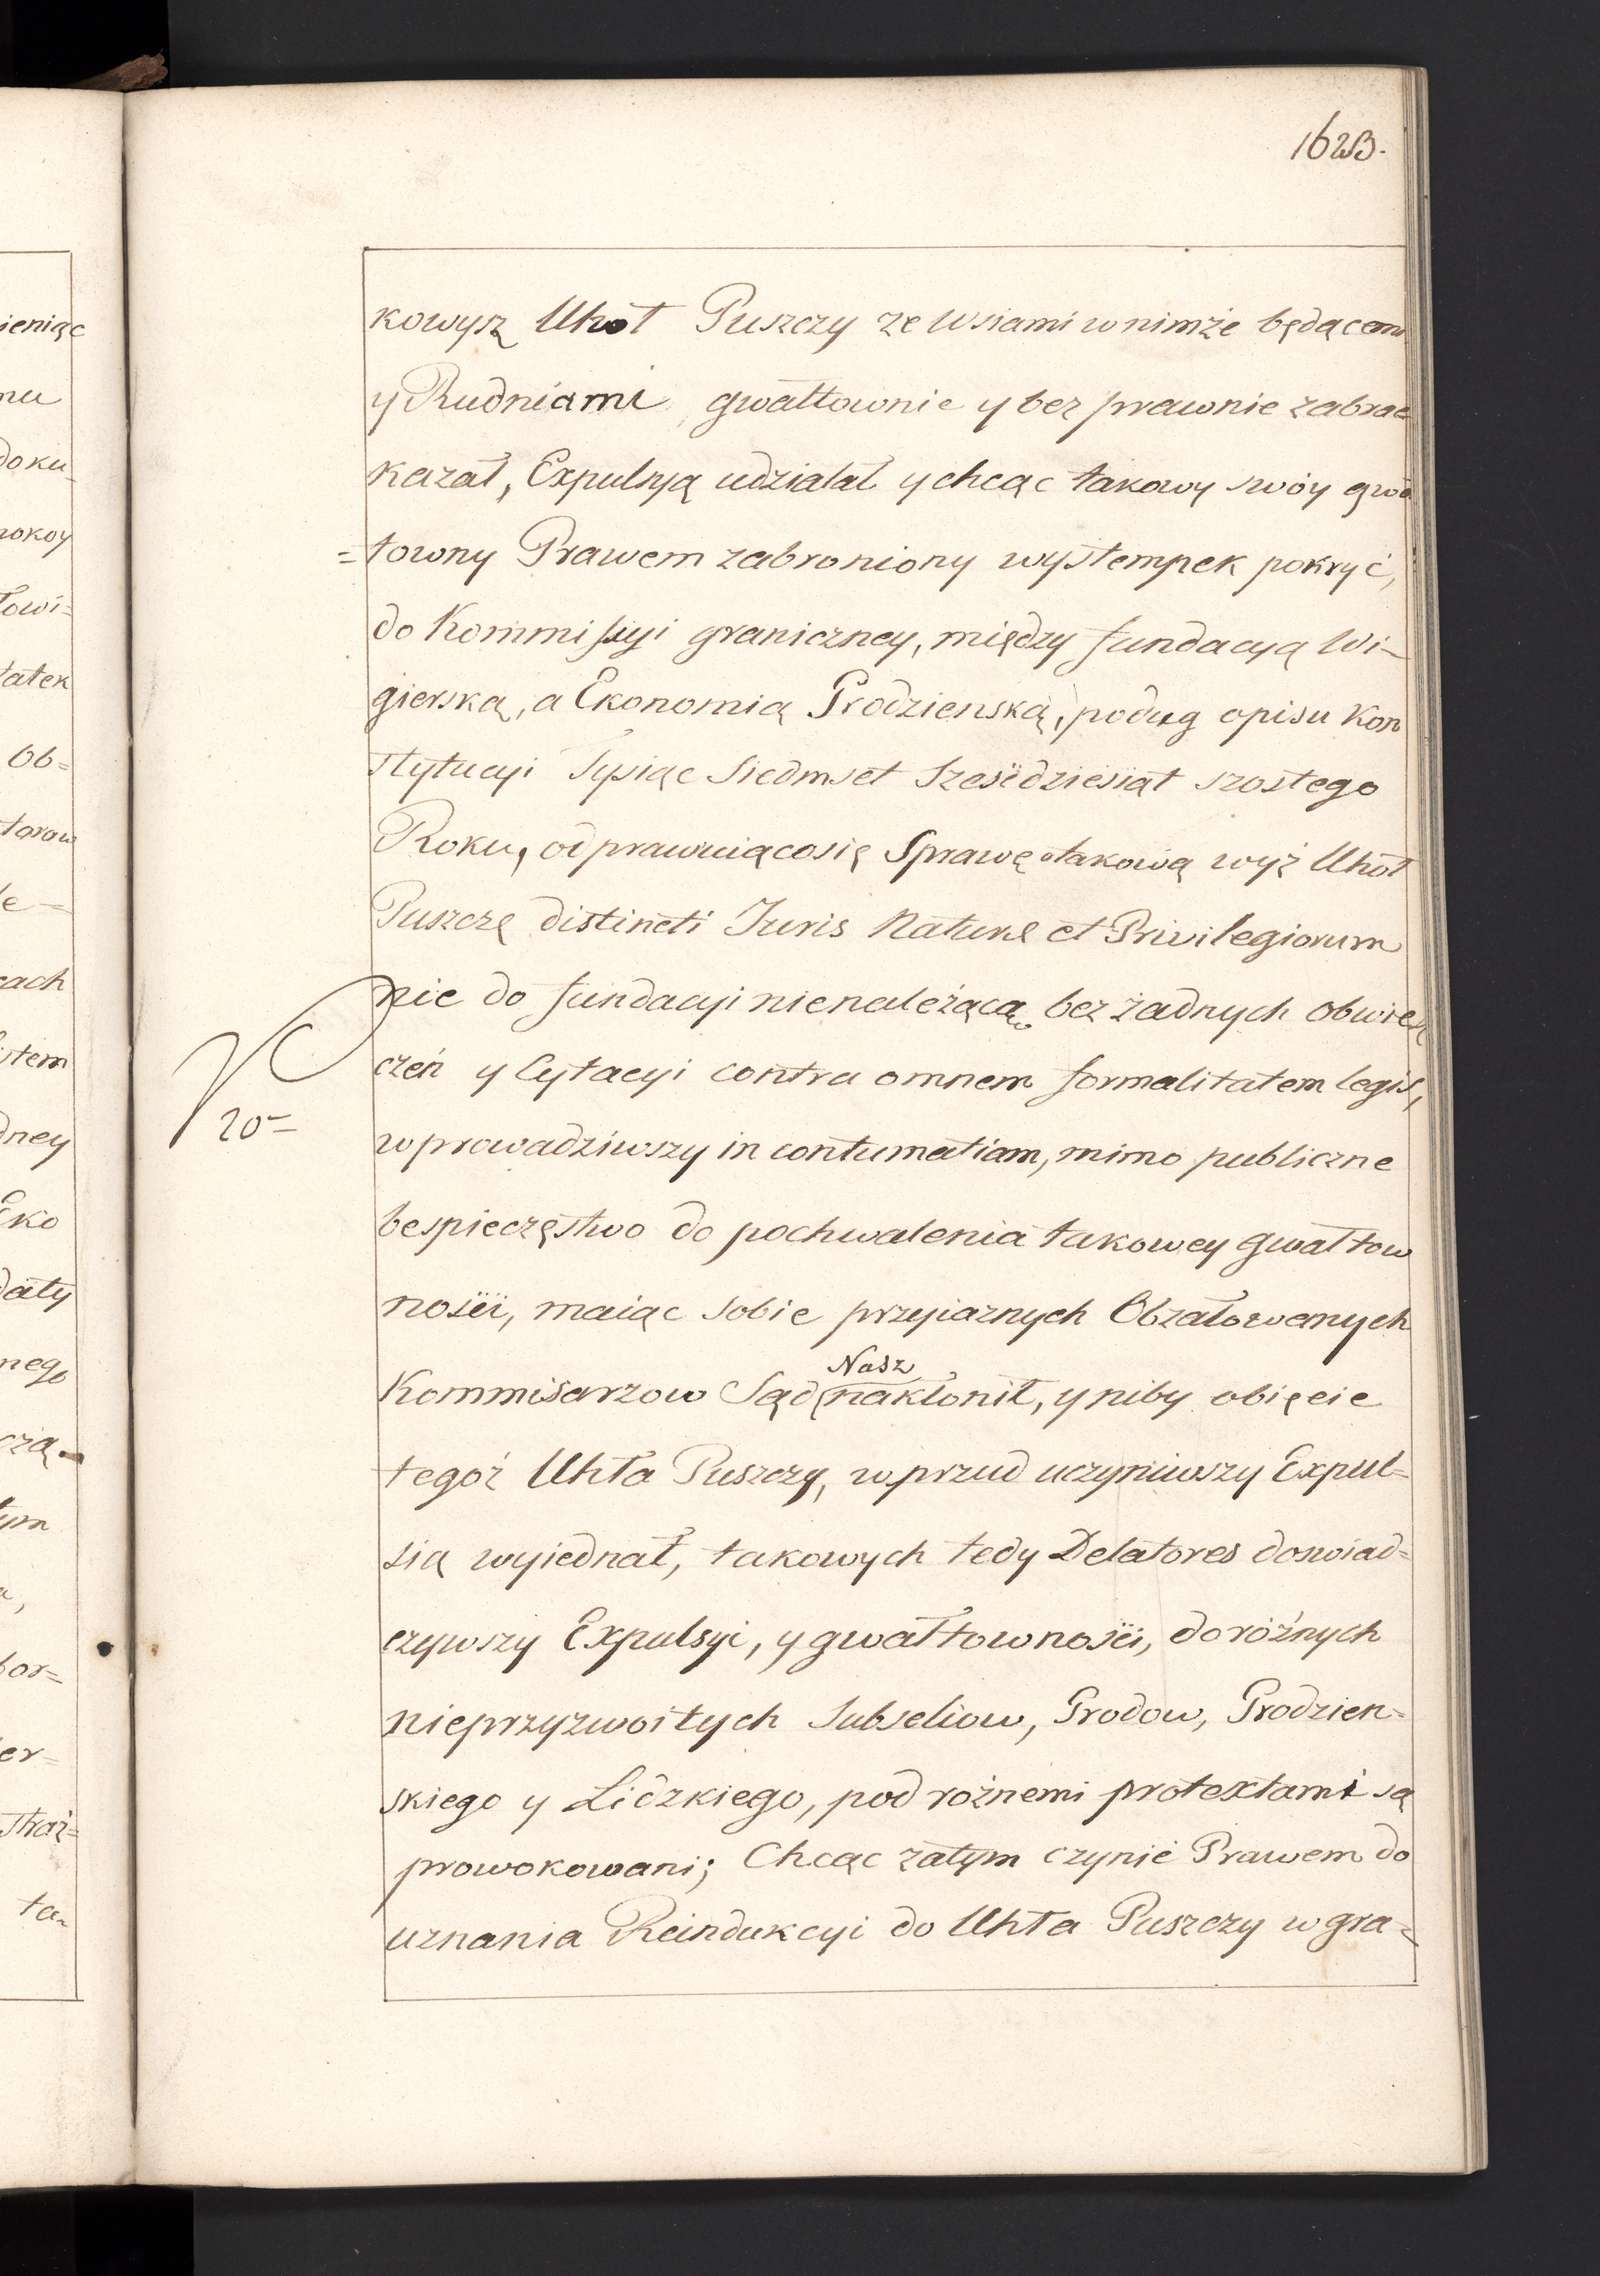 1623.
kowysz Uhoł Puszczy ze Wsiami w nimże będącemi
y Rudniami, gwałtownie y bez prawnie zabrać
kazał, Expulsyą udziałał y chcąc takowy swóy gwa
=towny Prawem zabroniony wystempek pokryć,
do Kommissyi graniczney, między fundacyą Wi-
gierską, a Ekonomią Grodzienską, podug opisu Kon
stytucyi Tysiąc Siedmset Szesćdziesiąt szostego
Roku, odprawuiącosię Sprawę otakową wyż Uhoł
Puszczę distincti Juris Naturæ et Privilegiorum
nic do fundacyi nienależącą, bez żadnych obwiesz
czeń y Cytacyi contra omnem formalitatem legis,
20=
wprowadziwszy in contumatiam, mimo publiczne
bespieczęstwo do pochwalenia takowey gwałtow
nosći, maiąc sobie przyiaznych Obżałowanych
Kommisarzow Sąd Nasz nakłonił, y niby obięcie
tegoż Uhła Puszczy, wprzud uczyniwszy Expul=
sią wyiednał, takowych tedy Delatores doswiad=
czywszy Expulsyi, y gwałtownosći, do różnych
nieprzyzwoitych Subseliow, Grodow, Grodzien=
skiego y Lidzkiego, pod rożnemi protextami są
prowokowani; Chcąc zatym czynić Prawem do
uznania Reindukcyi do Uhła Puszczy w gra=
ieniąc
mu
doku=
pokoy
łowi=
tatek
Ob=
le=
dney
Eko
daty
nego
bor=
er=
ta=